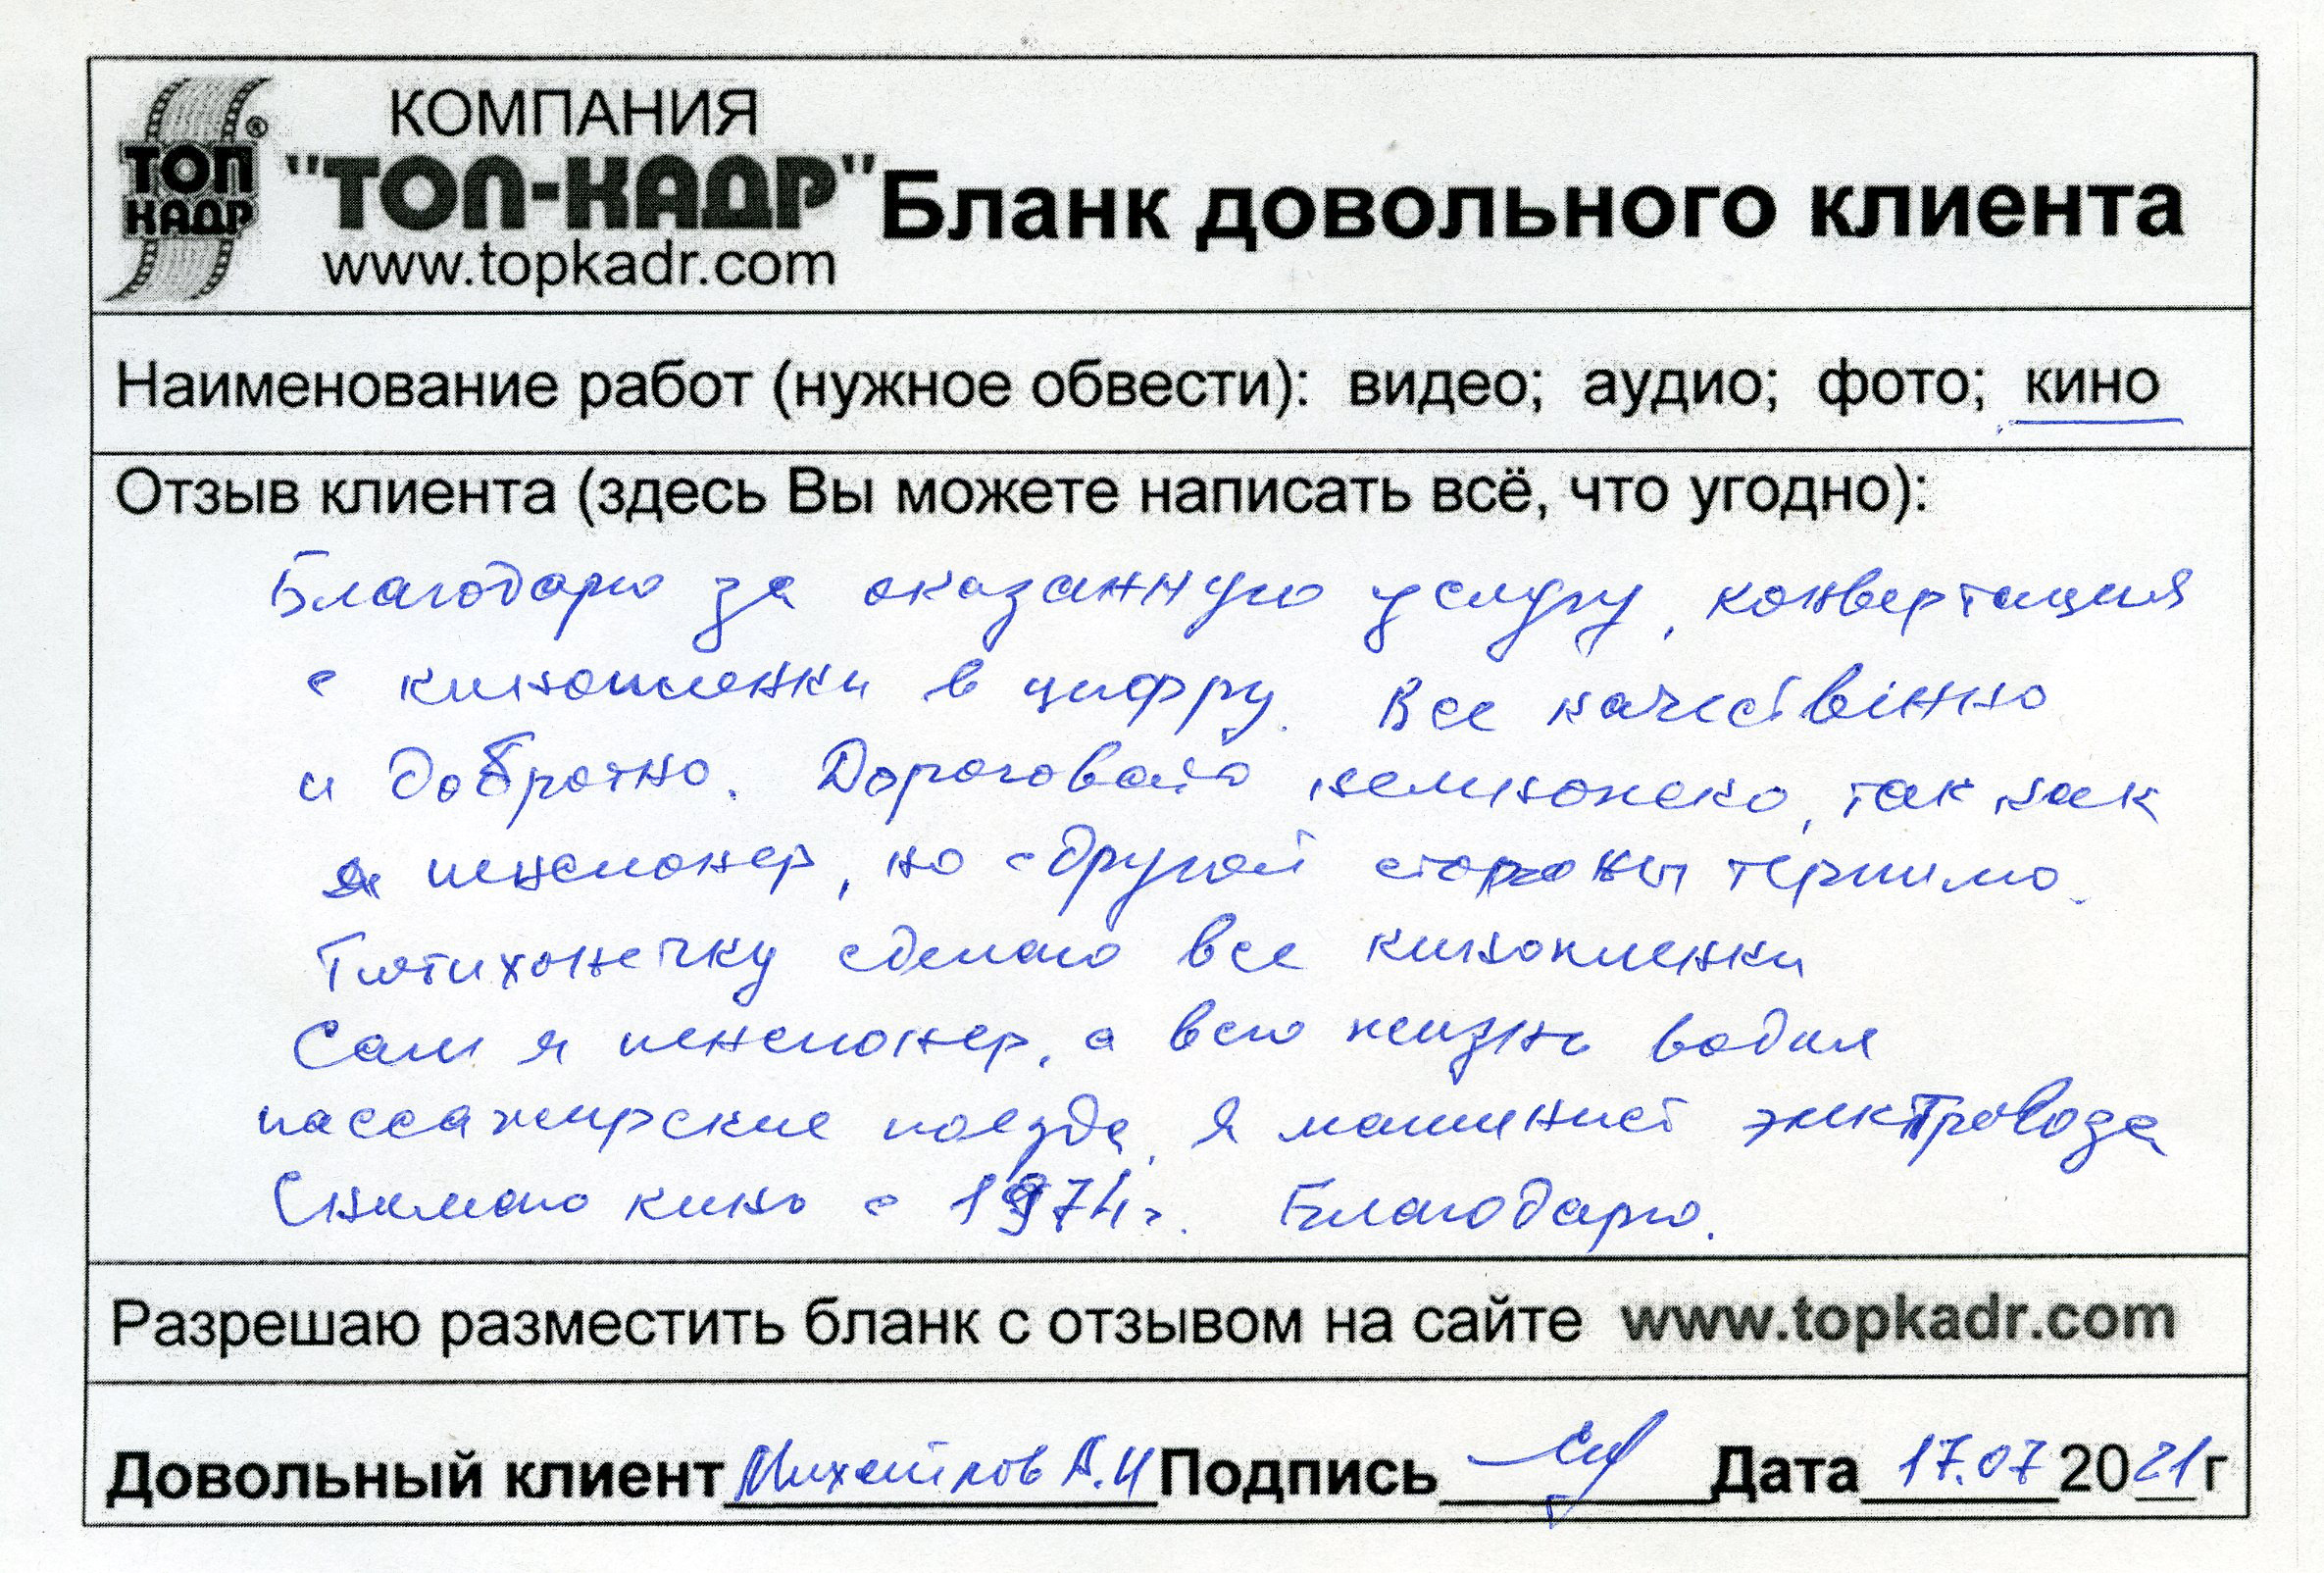 КОМПАНИЯ
ТОП КАДР ®
"ТОП-КАДР"
www.topkadr.com
Бланк довольного клиента
Наименование работ (нужное обвести): видео; аудио; фото; кино
Отзыв клиента (здесь Вы можете написать всё, что угодно):
Благодарю за оказанную услугу, конвертация
с кинопленки в цифру. Все качественно
и добротно. Дороговато немножеко, так как
я пенсионер, но с другой стороны терпимо.
сделаю все кинопленки
Сам я пенсионер, а всю жизнь водил
пассажирские поезда, я машинист электровоза
Снимаю кино с 1974г. Благодарю.
Разрешаю разместить бланк с отзывом на сайте www.topkadr.com
Довольный клиент Михайлов А.И Подпись Дата 17.07 2021г